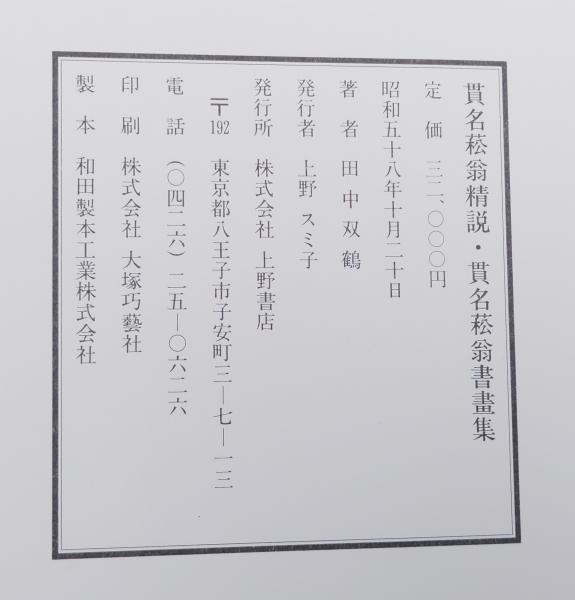 貫名菘翁精説・貫名菘翁書畫集
定価 三二、〇〇〇円
昭和五十八年十月二十日
著者 田中双鶴
発行者 上野スミ子
発行所 株式会社 上野書店
〒192 東京都八王子市子安町三―七―一三
電話 (〇四二六)二五―〇六二六
印刷 株式会社 大塚巧藝社
製本 和田製本工業株式会社